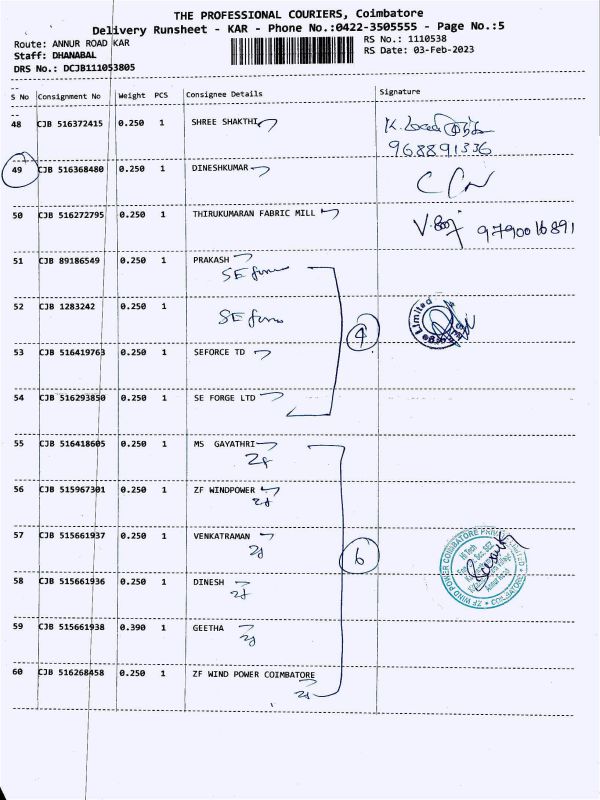 THE PROFESSIONAL COURIERS, Coimbatore
Delivery Runsheet - KAR - Phone No.:0422-3505555 - Page No.:5
Route: ANNUR ROAD KAR
RS No.: 1110538
Staff: DHANABAL
RS Date: 03-Feb-2023
DRS No.: DCJB111053805
S No Consignment No Weight PCS Consignee Details Signature
48 CJB 516372415 0.250 1 SHREE SHAKTHI
968891336
49 CJB 516368480 0.250 1 DINESHKUMAR
50 CJB 516272795 0.250 1 THIRUKUMARAN FABRIC MILL
9790016891
51 CJB 89186549 0.250 1 PRAKASH
SE forge
52 CJB 1283242 0.250 1
SE forge
4
53 CJB 516419763 0.250 1 SEFORCE TD
54 CJB 516293850 0.250 1 SE FORGE LTD
55 CJB 516418605 0.250 1 MS GAYATHRI
Zf
56 CJB 515967301 0.250 1 ZF WINDPOWER
zf
57 CJB 515661937 0.250 1 VENKATRAMAN
zf
6
ZF WIND POWER COIMBATORE PRIVATE LIMITED
COIMBATORE
58 CJB 515661936 0.250 1 DINESH
zf
59 CJB 515661938 0.390 1 GEETHA
zf
60 CJB 516268458 0.250 1 ZF WIND POWER COIMBATORE
zf